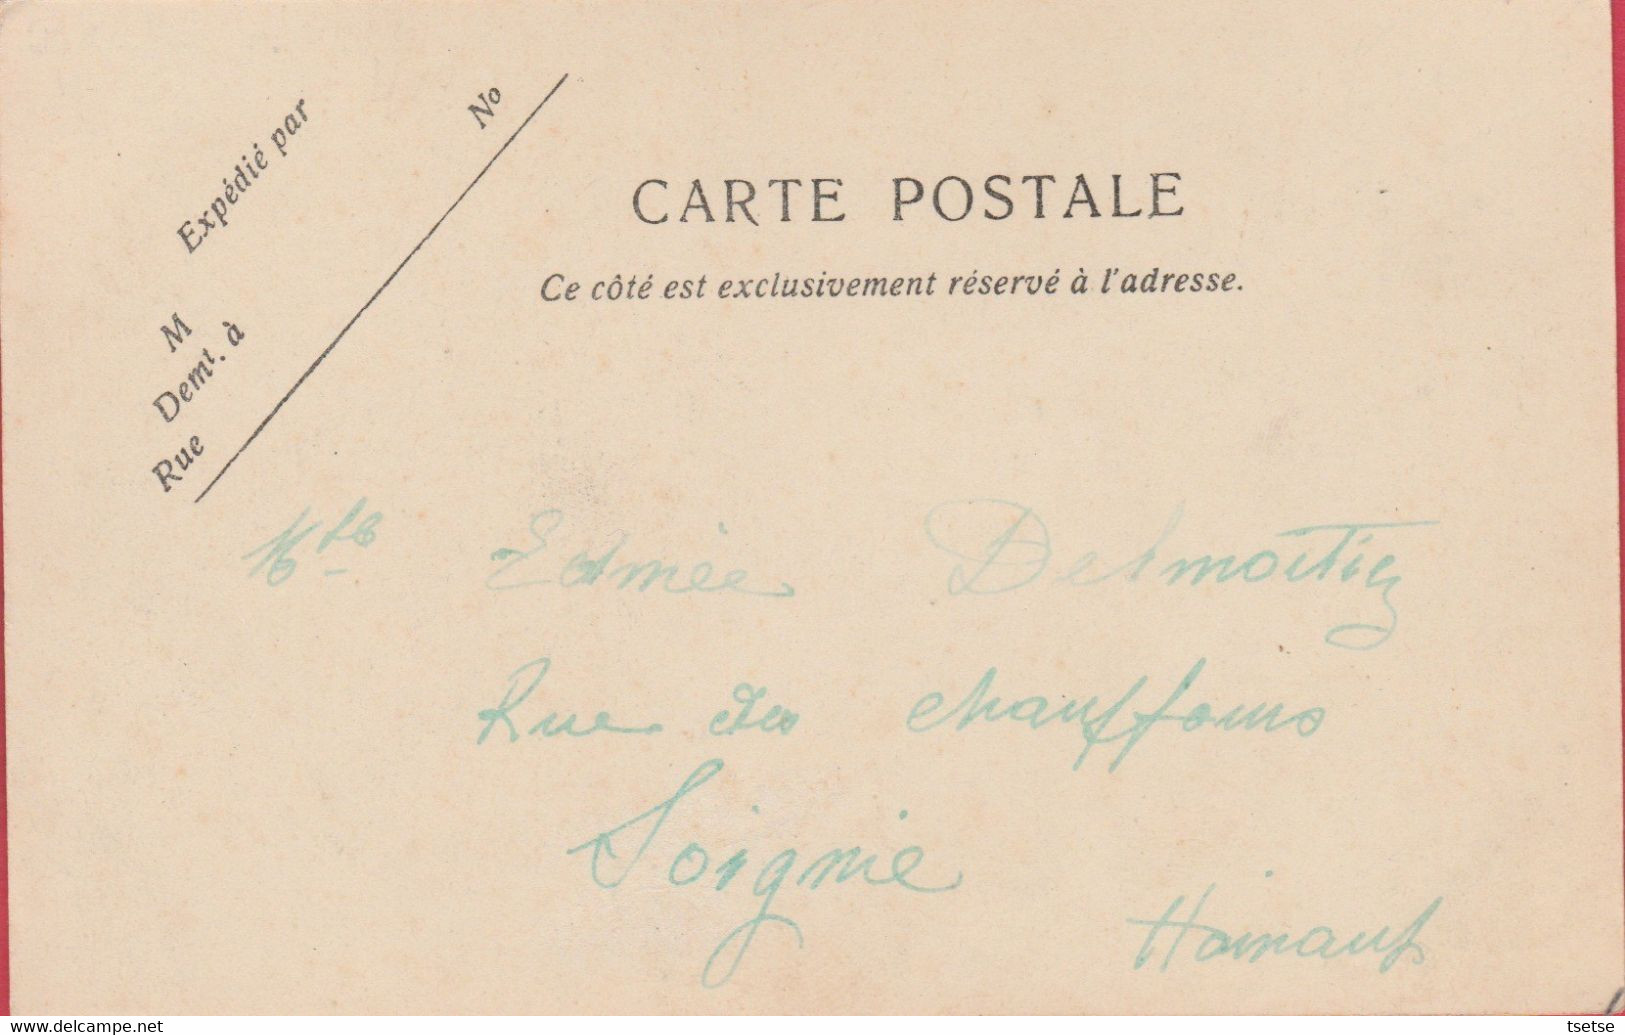 Expédié par
M
Demt. à
Rue
No
CARTE POSTALE
Ce côté est exclusivement réservé à l'adresse.
Mlle Edmée Delmoitiez
Rue des Chauffours
Soignie
Hainaut
www.delcampe.net
tsetse